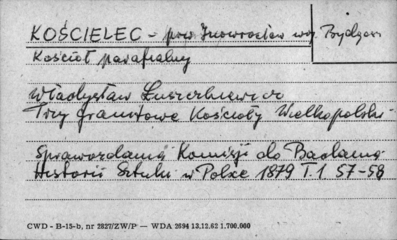 KOŚCIELEC - pow. Inowrocław woj. Bydgosz
Kościół parafialny
Władysław Łuszczkiewicz
Trzy granitowe Kościoły Wielkopolski
Sprawozdania Komisji do Badania
Historii Sztuki w Polsce 1879 T.1 57-58
CWD - B-15-b, nr 2827/ZW/P — WDA 2694 13.12.62 1.700.000